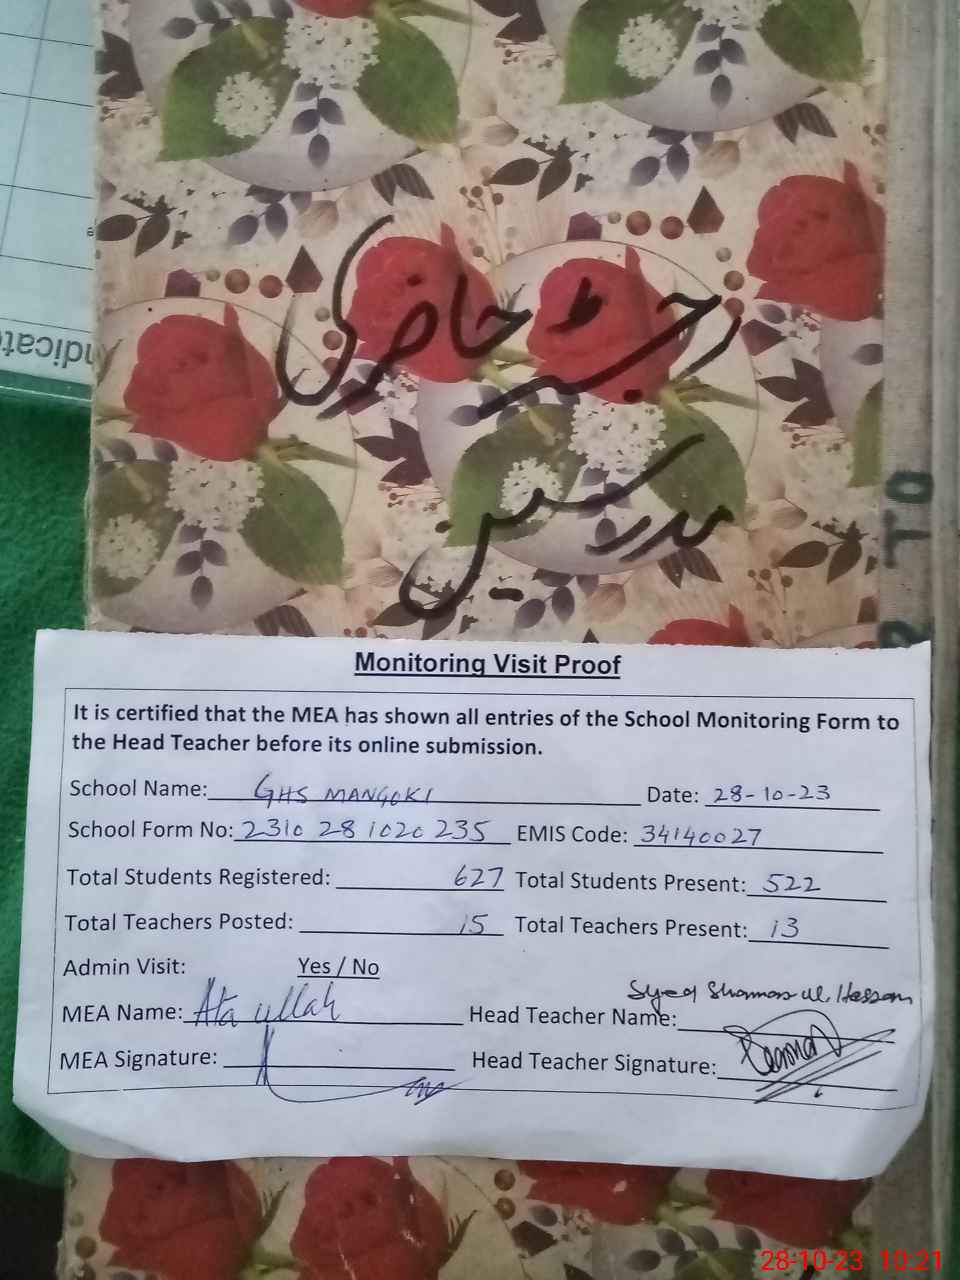 رجسٹر حاضری
مدرسین
Monitoring Visit Proof
It is certified that the MEA has shown all entries of the School Monitoring Form to
the Head Teacher before its online submission.
School Name: GHS MANGOKI Date: 28-10-23
School Form No: 2310 28 1020 235 EMIS Code: 34140027
Total Students Registered: 627 Total Students Present: 522
Total Teachers Posted: 15 Total Teachers Present: 13
Admin Visit: Yes / No
MEA Name: Ata ullah Head Teacher Name: Syed Shamas ul Hassan
MEA Signature: Head Teacher Signature:
28-10-23 10:21